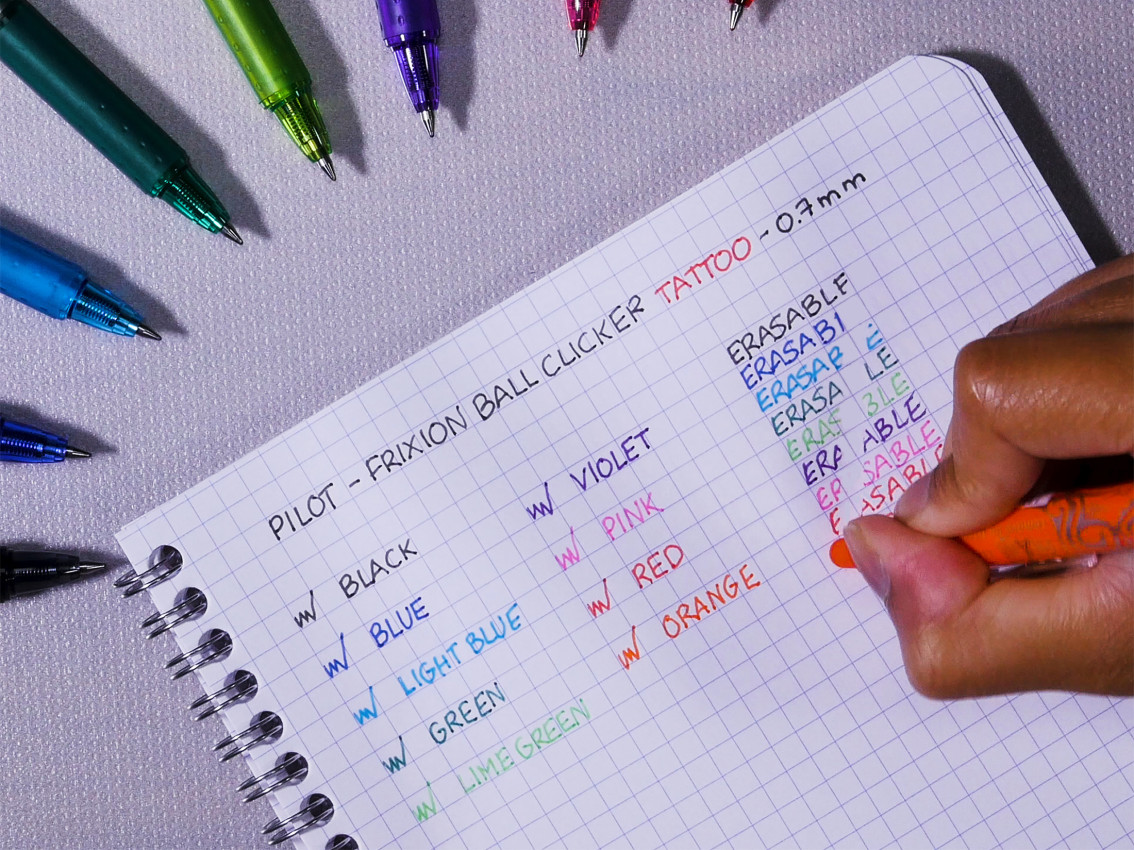 PILOT - FRIXION BALL CLICKER TATTOO - 0.7mm
BLACK
BLUE
LIGHT BLUE
GREEN
LIME GREEN
VIOLET
PINK
RED
ORANGE
ERASABLE
ERASABL
ERASAB E
ERASA LE
ERAS BLE
ERA ABLE
ER SABLE
E ASABLE